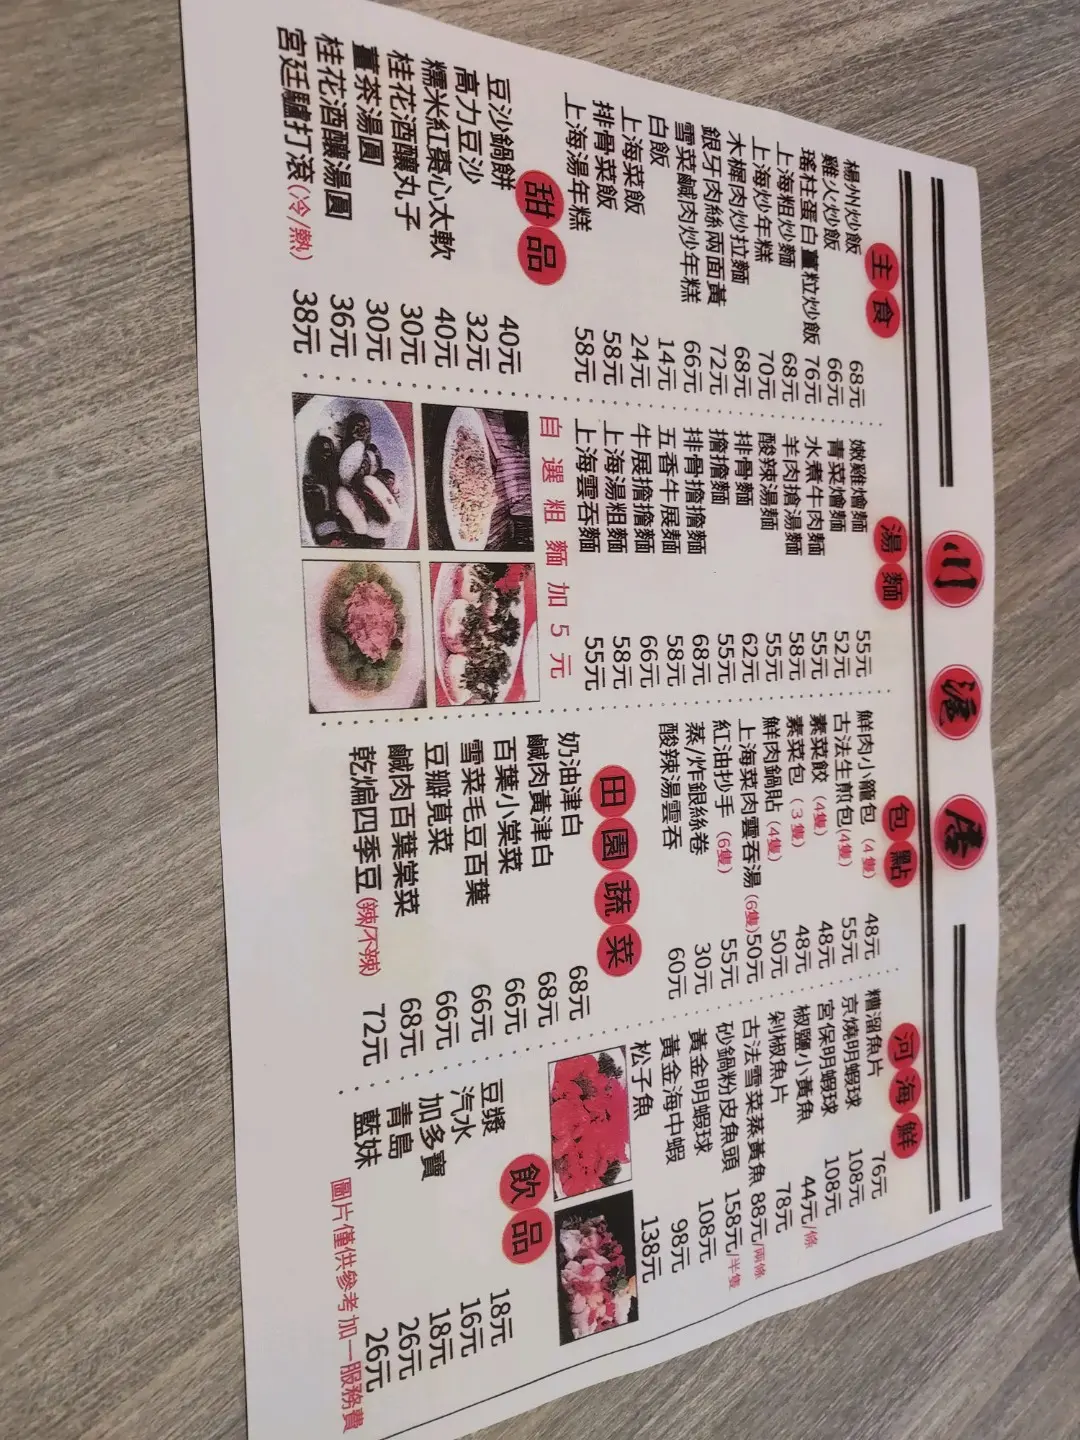 川 滬 居
主食
楊州炒飯 68元
雞火炒飯 66元
瑤柱蛋白薑粒炒飯 76元
上海粗炒麵 68元
上海炒年糕 70元
木樨肉炒拉麵 68元
銀牙肉絲兩面黃 72元
雪菜鹹肉炒年糕 66元
白飯 14元
上海菜飯 24元
排骨菜飯 58元
上海湯年糕 58元
湯麵
嫩雞燴麵 55元
青菜燴麵 52元
水煮牛肉麵 55元
羊肉搶湯麵 58元
酸辣湯麵 55元
排骨麵 62元
擔擔麵 55元
排骨擔擔麵 68元
五香牛展麵 58元
牛展擔擔麵 66元
上海湯粗麵 58元
上海雲吞麵 55元
自選粗麵加5元
包點
鮮肉小籠包(4隻) 48元
古法生煎包(4隻) 55元
素菜餃(4隻) 48元
素菜包(3隻) 48元
鮮肉鍋貼(4隻) 50元
上海菜肉雲吞湯(6隻) 50元
紅油抄手(6隻) 55元
蒸/炸銀絲卷 30元
酸辣湯雲吞 60元
河海鮮
糟溜魚片 76元
京燒明蝦球 108元
宮保明蝦球 108元
椒鹽小黃魚 44元/條
剁椒魚片 78元
古法雪菜蒸黃魚 88元/兩條
砂鍋粉皮魚頭 158元/半隻
黃金明蝦球 108元
黃金海中蝦 98元
松子魚 138元
甜品
豆沙鍋餅 40元
高力豆沙 32元
糯米紅棗心太軟 40元
桂花酒釀丸子 30元
薑茶湯圓 30元
桂花酒釀湯圓 36元
宮廷驢打滾(冷/熱) 38元
田園蔬菜
奶油津白 68元
鹹肉黃津白 68元
百葉小棠菜 66元
雪菜毛豆百葉 66元
豆瓣莧菜 66元
鹹肉百葉棠菜 68元
乾煸四季豆(辣/不辣) 72元
飲品
豆漿 18元
汽水 16元
加多寶 18元
青島 26元
藍妹 26元
圖片僅供參考 加一服務費